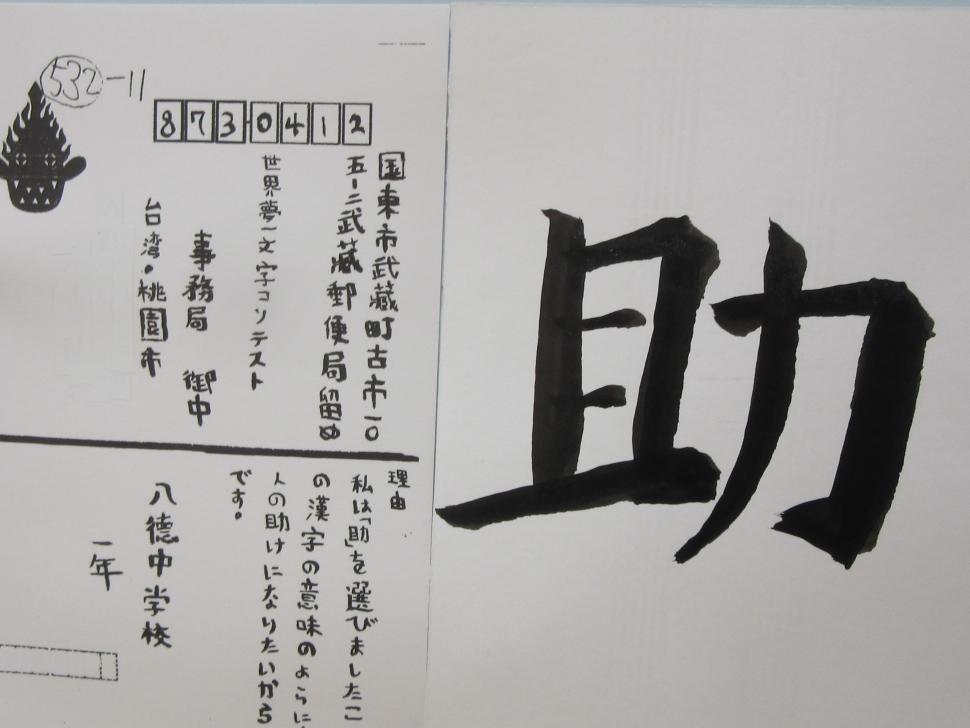 532-11
873-0412
国東市武蔵町古市一〇
五-二武蔵郵便局留め
世界夢一文字コンテスト
事務局 御中
台湾・桃園市
理由
私は「助」を選びましたこ
の漢字の意味のように
人の助けになりたいから
です。
八德中学校
一年
助